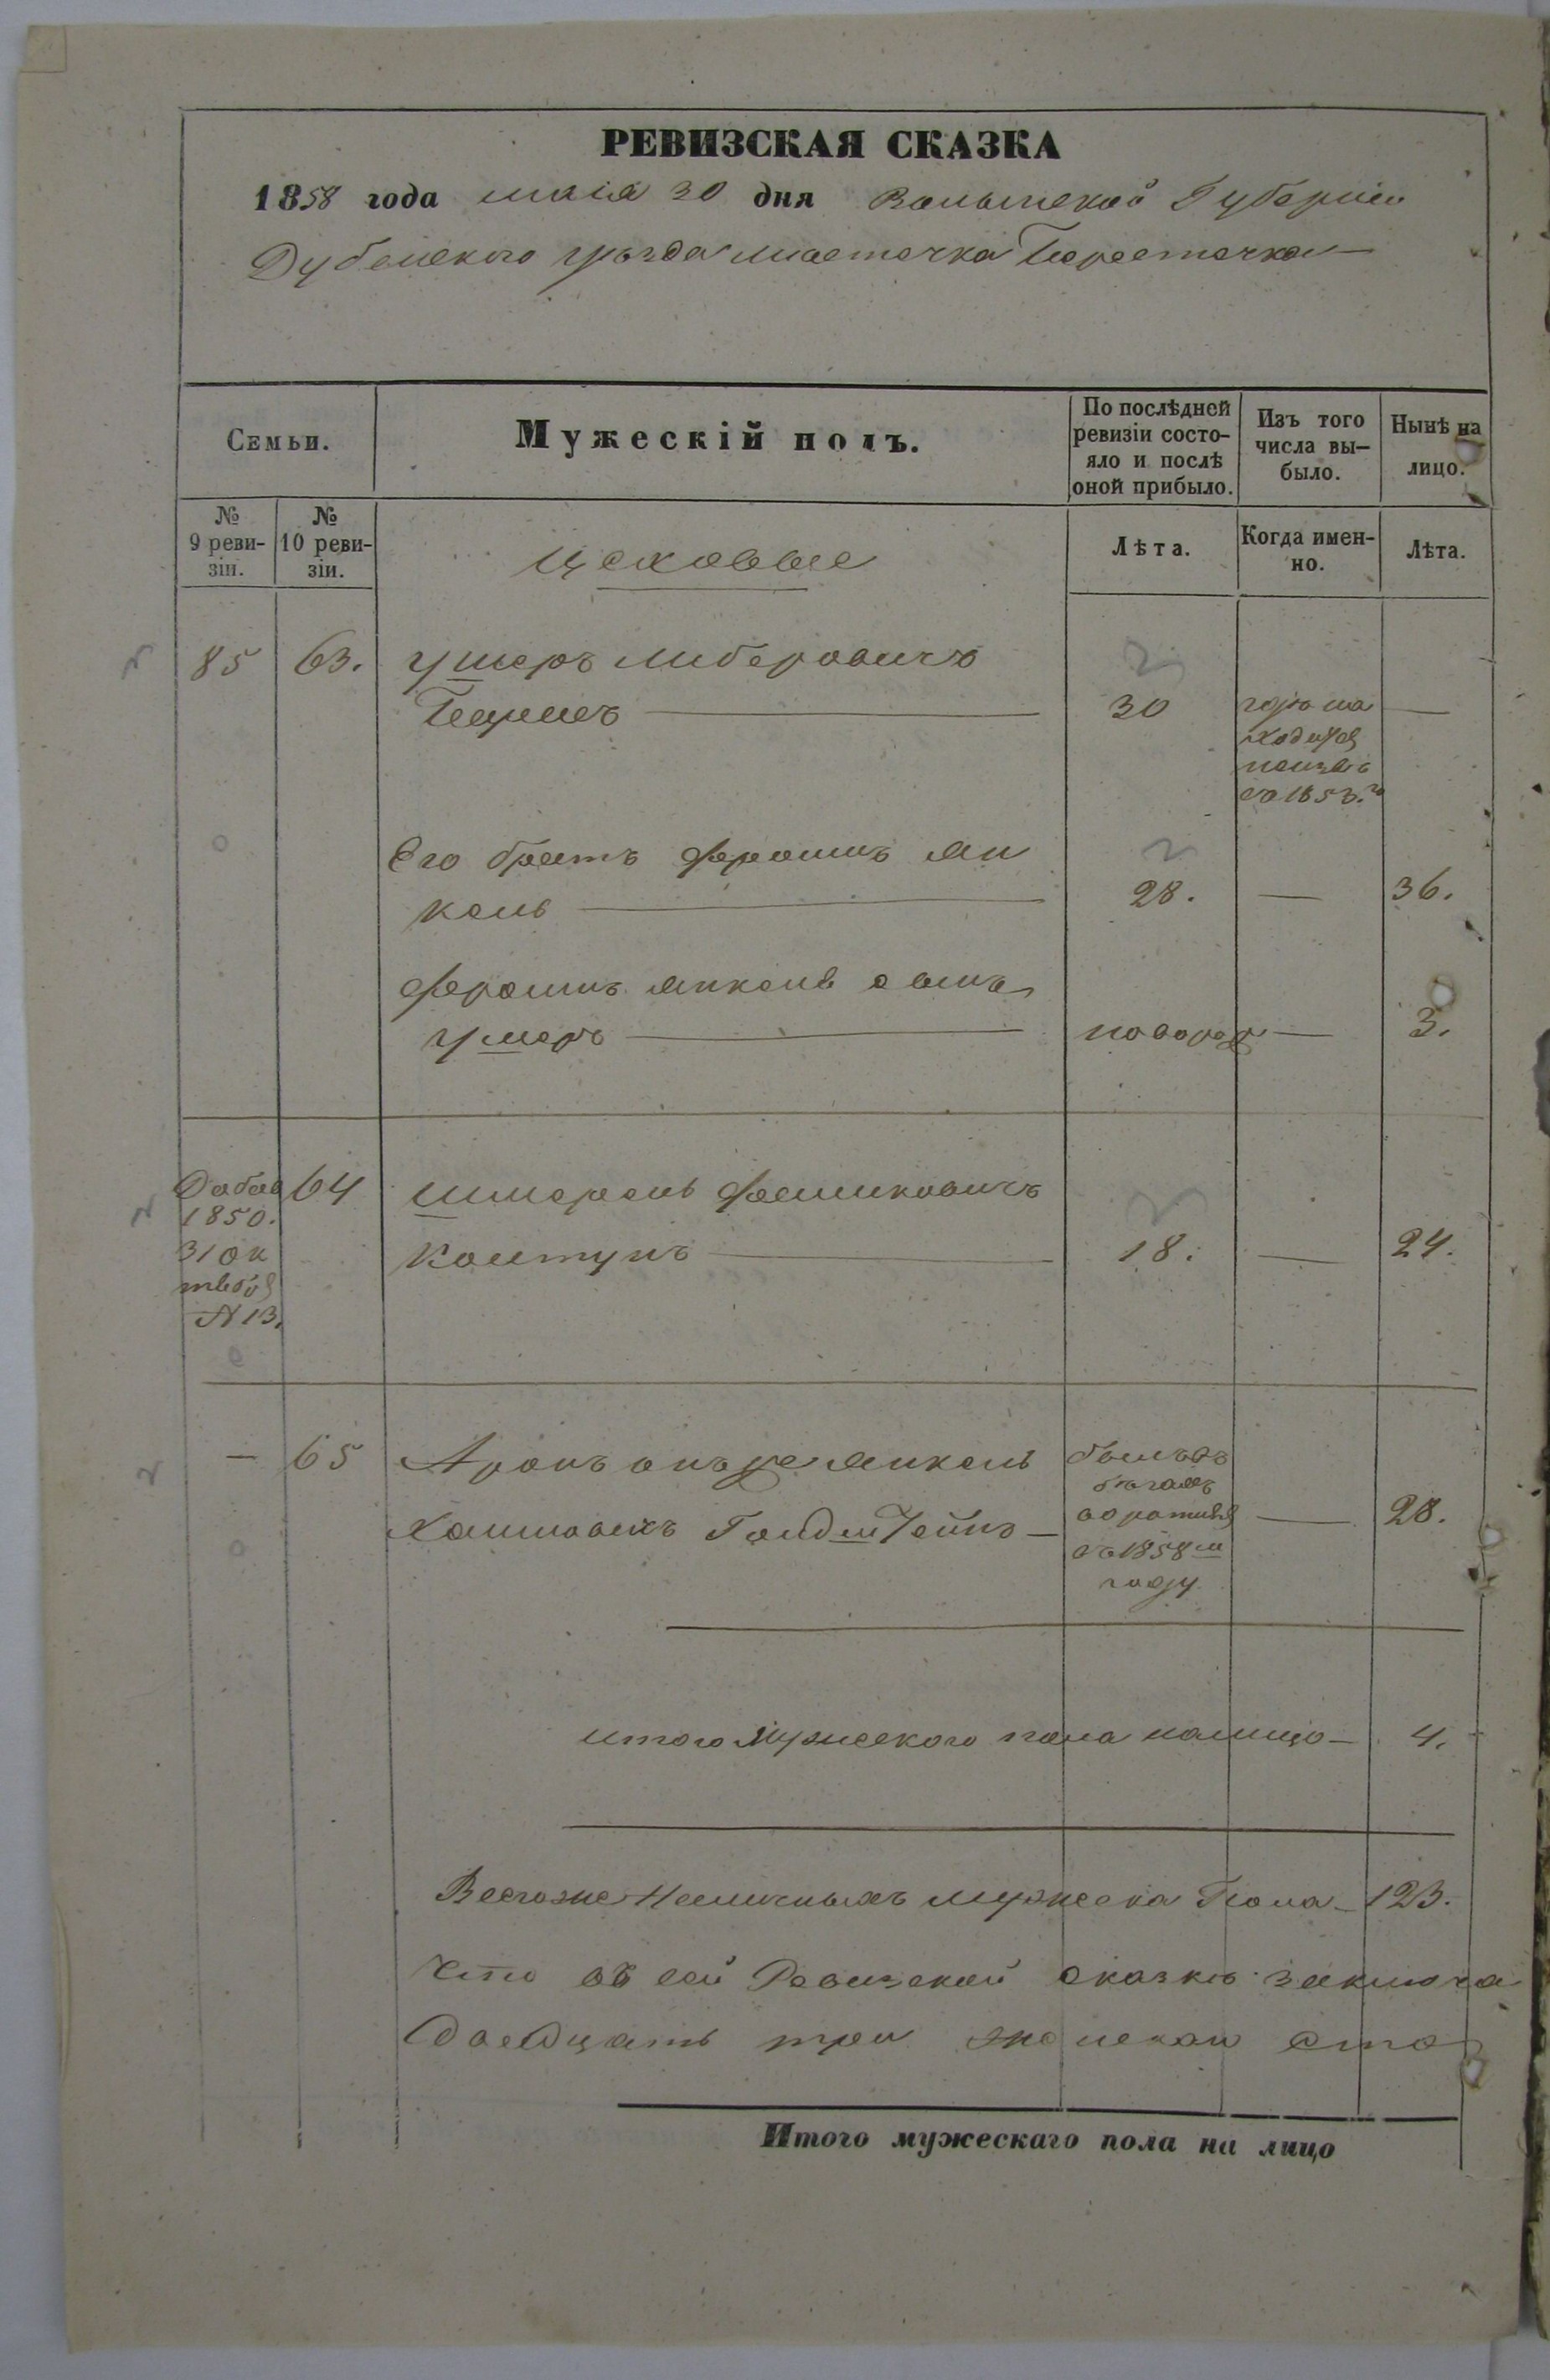 РЕВИЗСКАЯ СКАЗКА
1858 года маія 30 дня Волынской Губерніи
Дубенского уѣзда местечка Берестечка
Семьи.
Мужескій полъ.
По послѣдней ревизіи состо-
яло и послѣ
оной прибыло.
Изъ того
числа вы-
было.
Нынѣ на
лицо.
№
9 реви-
зіи.
№
10 реви-
зіи.
Цеховые
Лѣта.
Когда имен-
но.
Лѣта.
85 63. Ушеръ Либеровичъ
30
ходится
съ 1853.го
Его братъ Фроимъ Ян
кель 28. — 36.
Фроимъ Янкеля сынъ
Ушеръ новорож — 3.
Добав 64 Шмерель
1850.
31 ок
тября
№ 13.
Колтунъ 18. — 24.
— 65 Аронъ онъ же Янкель
Хаимовичъ Голдштейнъ — 28.
былъ въ
бѣгахъ
воротился
въ 1858м
году
итого Мужеского пола налицо — 4.
Всего же Наличныхъ мужеска Пола — 123.
Что въ сей Ревизской сказкѣ заключа
двадцать три женскаи сто
Итого мужескаго пола на лицо